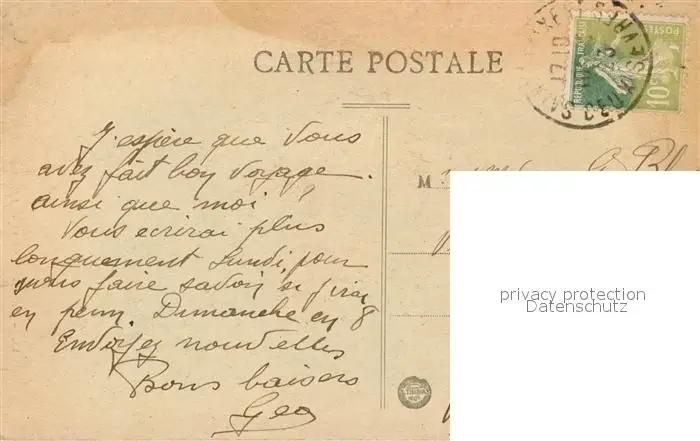 CARTE POSTALE
J'espère que Vous
avez fait bon Voyage.
ainsi que moi ?
Vous ecrirai plus
longuement Lundi, pour
vous faire savoir si j'irai
en perm Dimanche en 8
Envoyez nouvelles
Bons baisers
Geo
M
10
POSTES
privacy protection
Datenschutz